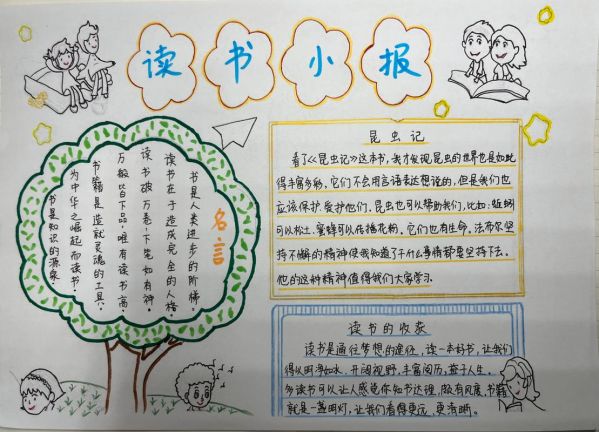 读书小报
名言
书是人类进步的阶梯。
读书在于造成完全的人格。
读书破万卷,下笔如有神。
万般皆下品,唯有读书高。
书籍是造就灵魂的工具。
为中华之崛起而读书。
书是知识的源泉
昆虫记
看了《昆虫记》这本书,我才发现昆虫的世界也是如此
得丰富多彩。它们不会用言语表达想说的,但是我们也
应该保护.爱护他们.昆虫也可以帮助我们,比如:蚯蚓
可以松土.蜜蜂可以传播花粉。它们也有生命。法布尔坚
持不懈的精神使我知道了干什么事情都要坚持下去。
他的这种精神值得我们大家学习.
读书的收获
读书是通往梦想的途径。读一本好书,让我们
得以明净如水、开阔视野.丰富阅历.益于人生...
多读书可以让人感觉你知书达理,颇有风度.书籍
就是一盏明灯,让我们看得更远、更清晰。